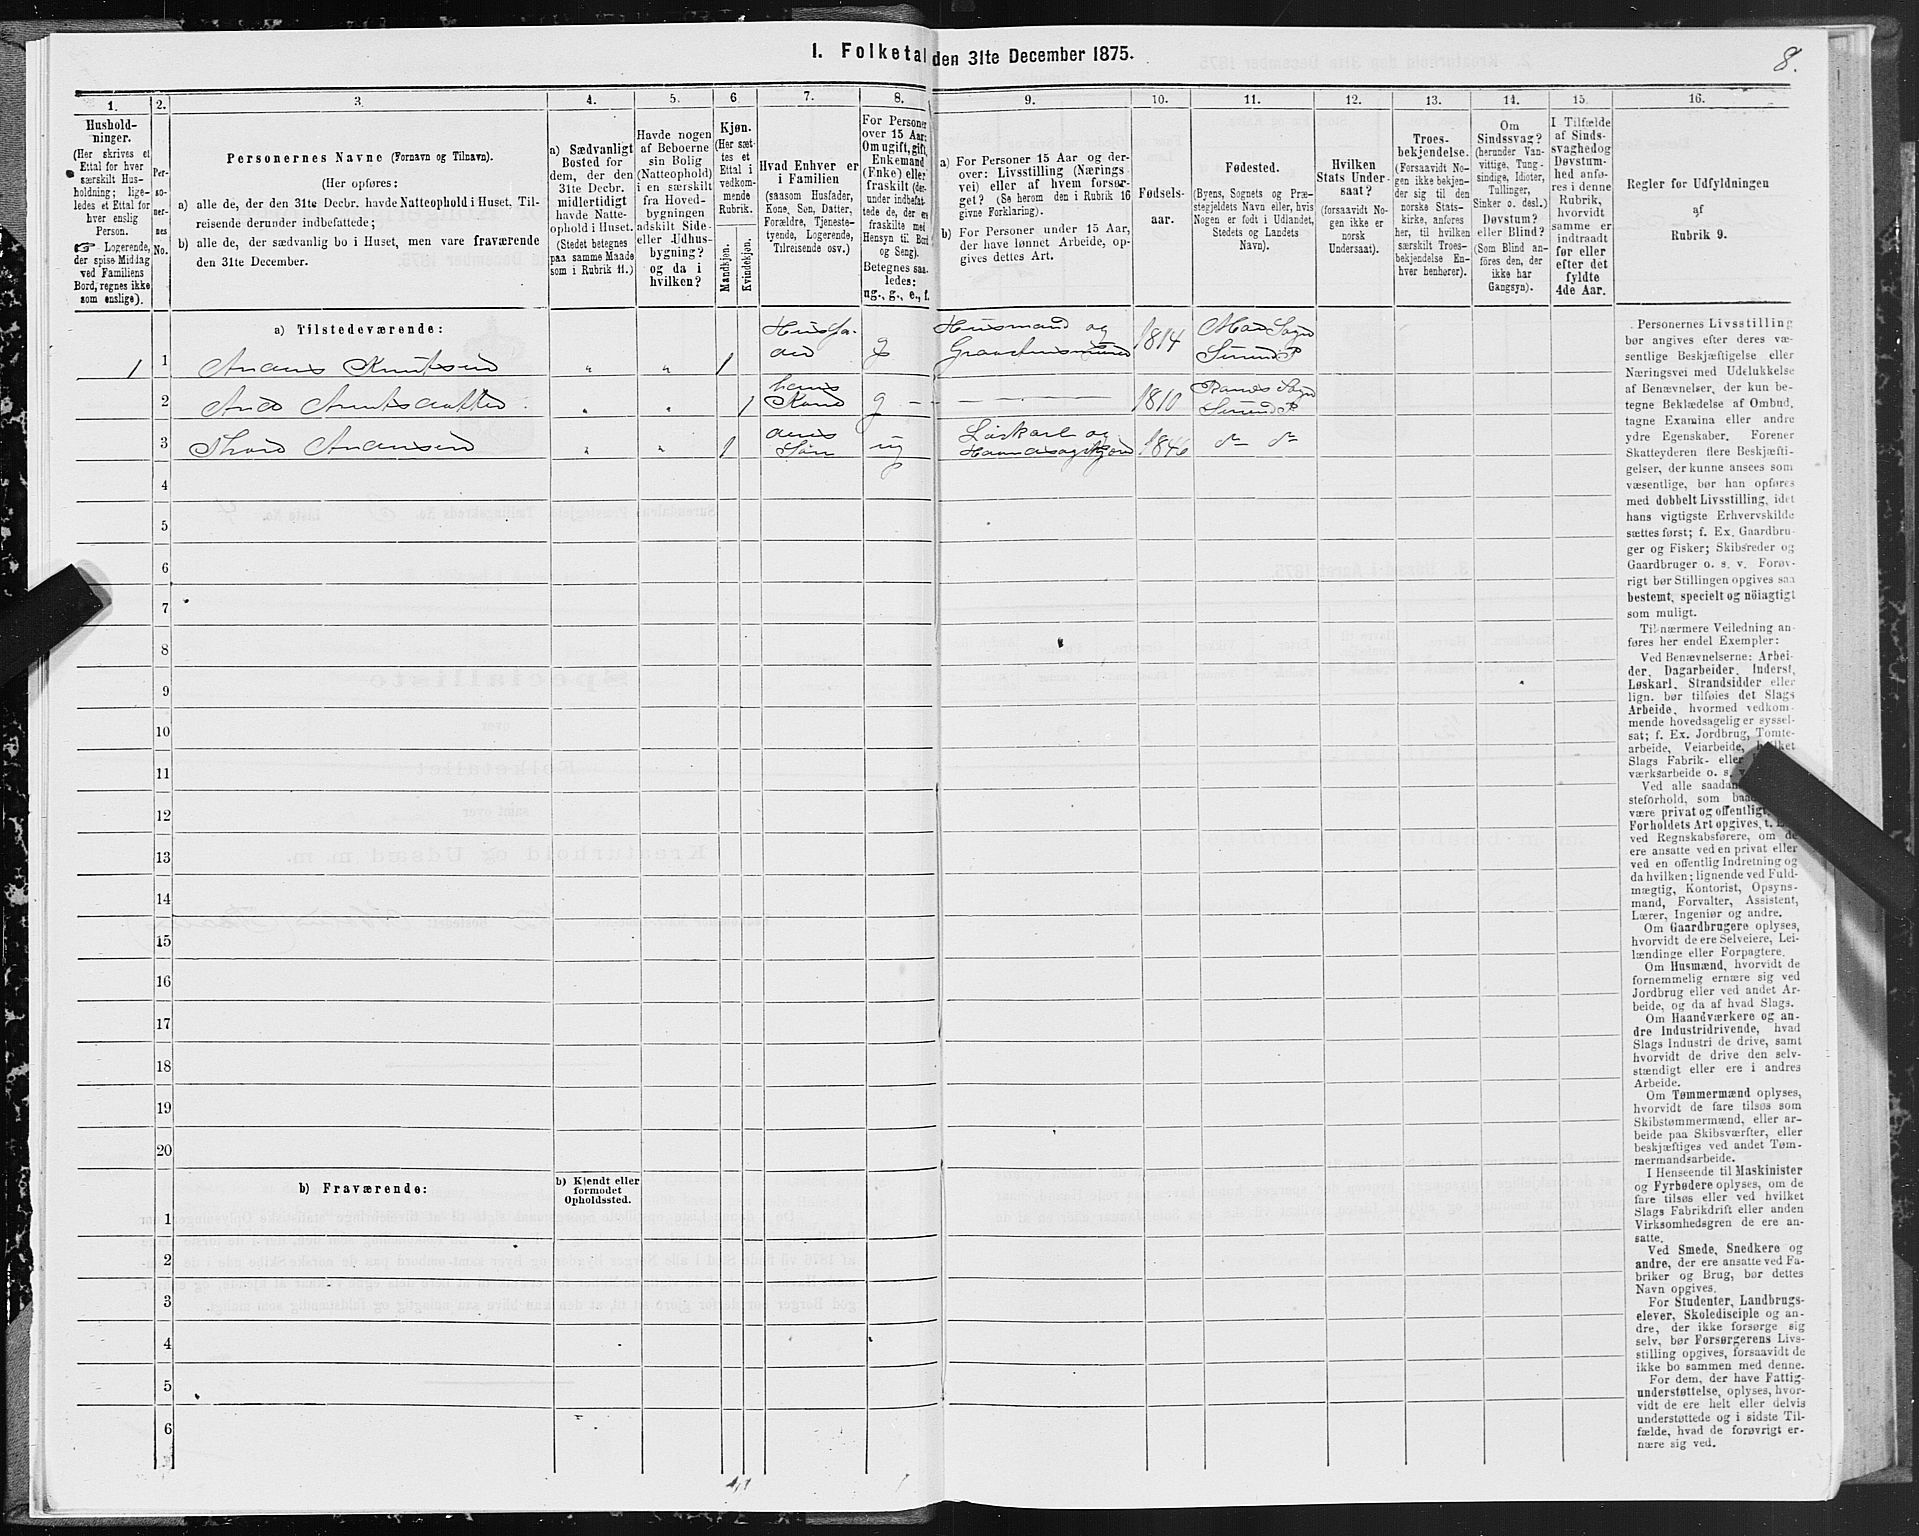 I. Folketal den 31te December 1875.
8.
1.
Hushold-
ninger.
(Her skrives et
Ettal for hver
særskilt Hus-
holdning; lige-
ledes et Ettal for
hver enslig
Person.
☞ Logerende,
der spise Middag
ved Familiens
Bord, regnes ikke
som enslige).
2.
Per-
so-
ner-
nes
No.
3.
Personernes Navne (Fornavn og Tilnavn).
(Her opføres:
a) alle de, der den 31te Decbr. havde Natteophold i Huset, Til-
reisende derunder indbefattede;
b) alle de, der sædvanlig bo i Huset, men vare fraværende
den 31te December.
4.
a) Sædvanligt
Bosted for
dem, der den
31te Decbr.
midlertidigt
havde Natte-
ophold i Huset.
(Stedet betegnes
paa samme Maade
som i Rubrik 11.)
5.
Havde nogen
af Beboerne
sin Bolig
(Natteophold)
i en særskilt
fra Hoved-
bygningen
adskilt Side-
eller Udhus-
bygning?
og da i
hvilken?
6
Kjøn.
(Her sæt-
tes et
Ettal i
vedkom-
mende
Rubrik.
Mandkjøn.
Kvindekjøn.
7.
Hvad Enhver er
i Familien
(saasom Husfader,
Kone, Søn, Datter,
Forældre, Tjeneste-
tyende, Logerende,
Tilreisende osv.)
8.
For Personer
over 15 Aar:
Om ugift, gift,
Enkemand
(Enke) eller
fraskilt (der-
under indbefat-
tede de, der er
fraskilte med
Hensyn til Bord
og Seng).
Betegnes saa-
ledes:
ug., g., e., f.
9.
a) For Personer 15 Aar og der-
over: Livsstilling (Nærings-
vei) eller af hvem forsør-
get? (Se herom den i Rubrik 16
givne Forklaring).
b) For Personer under 15 Aar,
der have lønnet Arbeide, op-
gives dettes Art.
10.
Fødsels-
aar.
11.
Fødested.
(Byens, Sognets og Præ-
stegjeldets Navn eller, hvis
Nogen er født i Udlandet,
Stedets og Landets
Navn).
12.
Hvilken
Stats Under-
saat?
(forsaavidt No-
gen ikke er
norsk
Undersaat).
13.
Troes-
bekjendelse.
(Forsaavidt No-
gen ikke bekjen-
der sig til den
norske Stats-
kirke, anføres
her, til hvilken
særskilt Troes-
bekjendelse En-
hver henhører).
14.
Om
Sindssvag?
(herunder Van-
vittige, Tung-
sindige, Idioter,
Tullinger,
Sinker o. desl.)
Døvstum?
eller Blind?
(Som Blind an-
føres den, der
ikke har
Gangsyn).
15
I Tilfælde
af Sinds-
svaghed og
Døvstum-
hed anfø-
res i denne
Rubrik,
hvorvidt
samme er
indtraadt
før eller
efter det
fyldte
4de Aar.
16.
Regler for Udfyldningen
af
Rubrik 9.
a) Tilstedeværende:
1 1 Anders Knutsen " " 1 Husfa-
der g Husmand og
1814 Moe Sogn
Surend P
2 " " 1 hans
Kone g - - - - - - 1810 Ranes Sogn
Surend P
3 Thore Andersen " " 1 deres
Søn ug Løskarl og
1846 do do
4
5
6
7
8
9
10
11
12
13
14
15
16
17
18
19
20
b) Fraværende:
b) Kjendt eller
formodet
Opholdssted.
1
2
3
4
5
6
Personernes Livsstilling
bør angives efter deres væ-
sentlige Beskjæftigelse eller
Næringsvei med Udelukkelse
af Benævnelser, der kun be-
tegne Beklædelse af Ombud,
tagne Examina eller andre
ydre Egenskaber. Forener
Skatteyderen flere Beskjæfti-
gelser, der kunne ansees som
væsentlige, bør han opføres
med dobbelt Livsstilling, idet
hans vigtigste Erhvervskilde
sættes først; f. Ex. Gaardbru-
ger og Fisker; Skibsreder og
Gaardbruger o. s. v. Forøv-
rigt bør Stillingen opgives saa
bestemt, specielt og nöiagtigt
som muligt.
Til nærmere Veiledning an-
føres her endel Exempler:
Ved Benævnelserne: Arbei-
der, Dagarbeider, Inderst,
Løskarl, Strandsidder eller
lign. bør tilføies det Slags
Arbeide, hvormed vedkom-
mende hovedsagelig er syssel-
sat; f. Ex. Jordbrug, Tomte-
arbeide, Veiarbeide,
Slags Fabrik- eller
værksarbeide o. s. v.
Ved alle saadan
steforhold, som
være privat og offentlig,
Forholdets Art opgives, t.
ved Regnskabsførere, om de
ere ansatte ved en privat eller
ved en offentlig Indretning og
da hvilken; lignende ved Fuld-
mægtig, Kontorist, Opsyns-
mand, Forvalter, Assistent,
Lærer, Ingeniør og andre.
Om Gaardbrugere oplyses,
hvorvidt de ere Selveiere, Lei-
lændinge eller Forpagtere.
Om Husmænd, hvorvidt de
fornemmelig ernære sig ved
Jordbrug eller ved andet Ar-
beide, og da af hvad Slags.
Om Haandværkere og an-
dre Industridrivende, hvad
Slags Industri de drive, samt
hvorvidt de drive den selv-
stændigt eller ere i andres
Arbeide.
Om Tømmermænd oplyses,
hvorvidt de fare tilsøs som
Skibstømmermænd, eller ar-
beide paa Skibsværfter, eller
beskjæftiges ved andet Tøm-
mermandsarbeide.
I Henseende til Maskinister
og Fyrbødere oplyses, om de
fare tilsøs eller ved hvilket
Slags Fabrikdrift eller anden
Virksomhedsgren de ere an-
satte.
Ved Smede, Snedkere og
andre, der ere ansatte ved Fa-
briker og Brug, bør dettes
Navn opgives.
For Studenter, Landbrugs-
elever, Skoledisciple og an-
dre, der ikke forsørge sig
selv, bør Forsørgerens Livs-
stilling opgives, forsaavidt de
ikke bo sammen med denne.
For dem, der have Fattig-
understøttelse, oplyses, hvor-
vidt de ere helt eller delvis
understøttede og i sidste Til-
fælde, hvad de forøvrigt er-
nære sig ved.